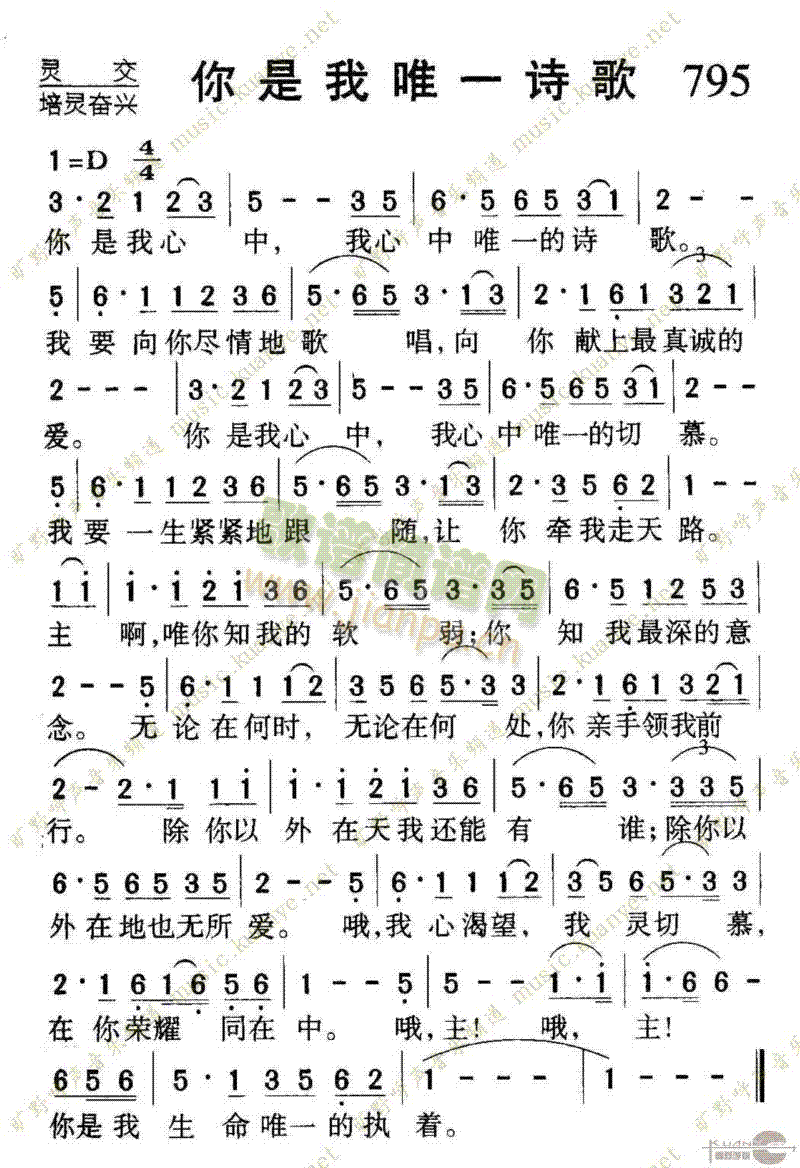 灵 交
培灵奋兴
你是我唯一诗歌 795
1=D 4/4
3·2 1 2 3 | 5 - - 3 5 | 6·5 6 5 3 1 | 2 - -
你 是我心 中, 我心 中 唯一的诗 歌。
5 | 6·1 1 2 3 6 | 5·6 5 3·1 3 | 2·1 6 1 3 2 1 |
3
我 要 向你尽情地歌 唱,向 你 献上最真诚的
2 - - - | 3·2 1 2 3 | 5 - - 3 5 | 6·5 6 5 3 1 | 2 - -
爱。 你 是我心 中, 我心 中唯一的切 慕。
5 | 6·1 1 2 3 6 | 5·6 5 3·1 3 | 2·3 5 6 2 | 1 - -
我 要 一生紧紧地 跟 随,让 你 牵我走天 路。
1 i | i·i 2 i 3 6 | 5·6 5 3·3 5 | 6·5 1 2 5 3 |
主 啊,唯你知我的 软 弱;你 知 我最深的意
2 - - 5 | 6·1 1 1 2 | 3 5 6 5·3 3 | 2·1 6 1 3 2 1 |
念。 无 论在何时, 无论在何 处,你 亲手领我前
2 - 2·1 1 1 i | i·i 2 i 3 6 | 5·6 5 3·3 3 5 |
3
行。 除 你以 外 在天我还能 有 谁;除你以
6·5 6 5 3 5 | 2 - - 5 | 6·1 1 1 2 | 3 5 6 5·3 3 |
外 在地也无所 爱。 哦,我 心渴望, 我 灵切 慕,
2·1 6 1 6 5 6 | 1 - - 5 | 5 - - 1·i | i·6 6 -
在 你荣耀 同在 中。 哦,主! 哦, 主!
6 5 6 | 5·1 3 5 6 2 | 1 - - - | 1 - - - ‖
你是我 生 命唯一的执 着。
旷野呼声音乐频道 music.kuanye.net
歌谱简谱网
www.jianpu.cn